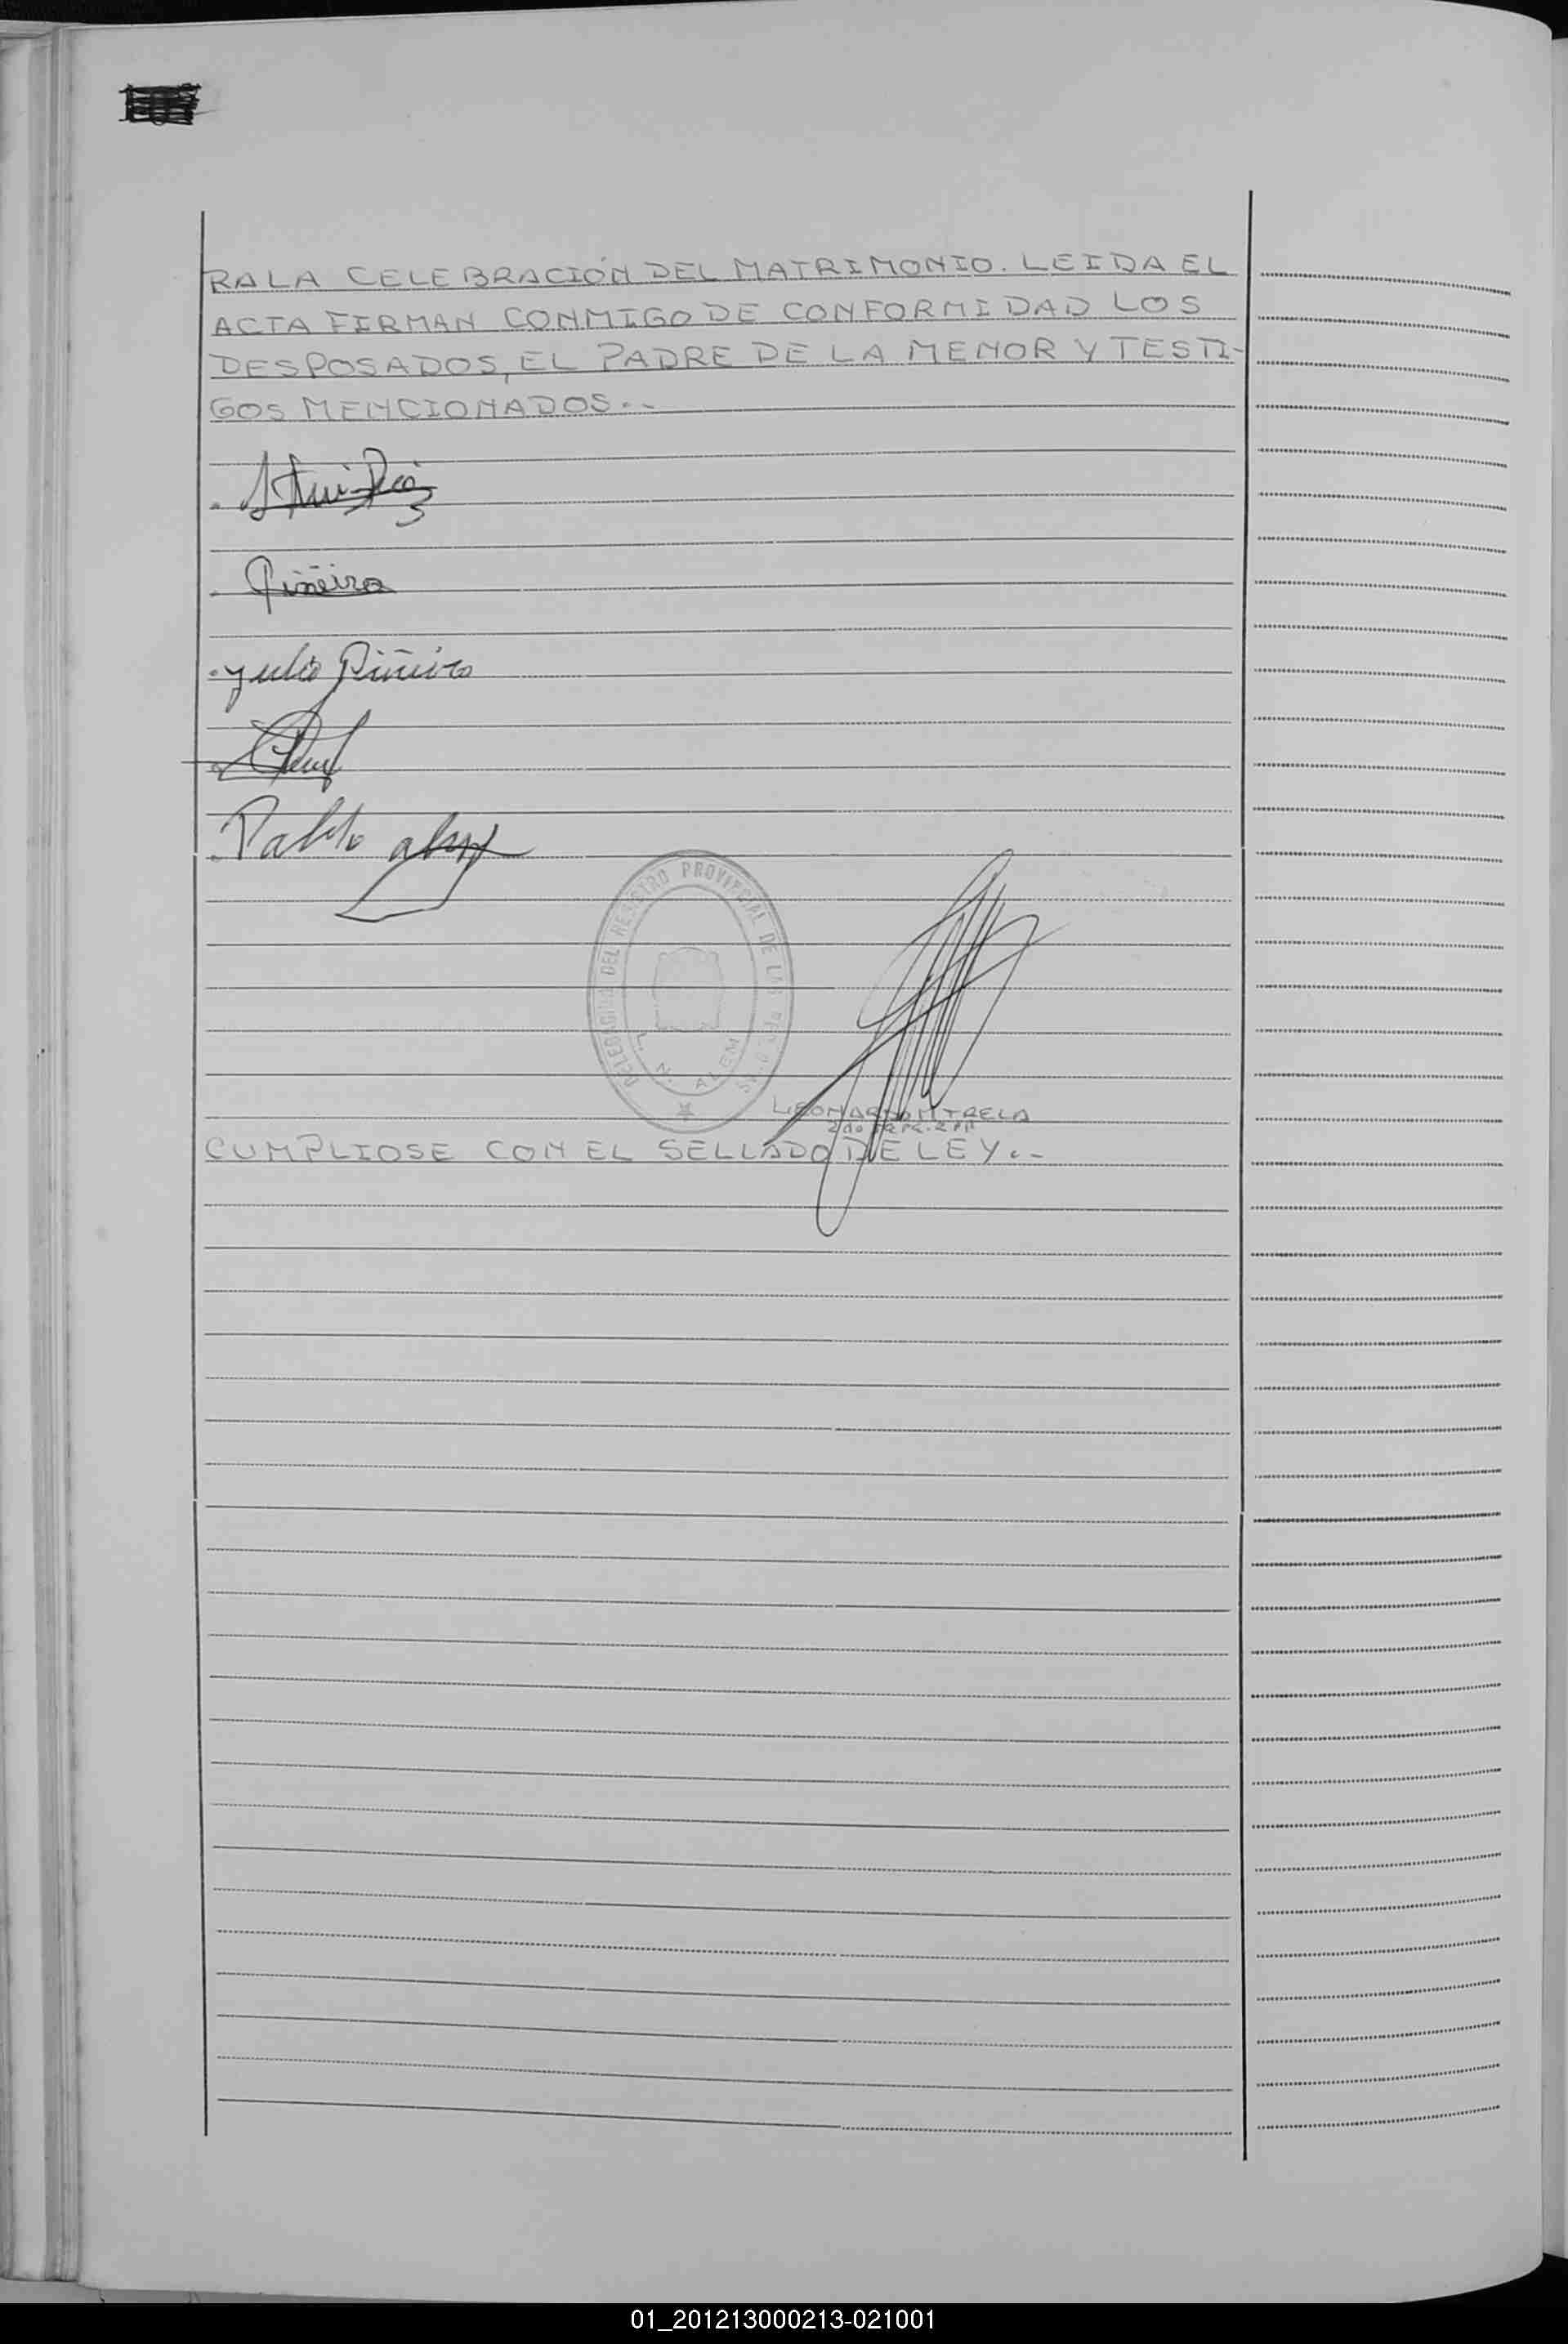 RA LA CELEBRACIÓN DEL MATRIMONIO. LEIDA EL
ACTA FIRMAN CONMIGO DE CONFORMIDAD LOS
DESPOSADOS, EL PADRE DE LA MENOR Y TESTI-
GOS MENCIONADOS.-
Piñeiro
Julio Piñeiro
Pablo
DELEGACION DEL REGISTRO PROVINCIAL DE LAS
L. N. ALEM
LEONARDO M TRELA
CUMPLIOSE CON EL SELLADO DE LEY.-
01_201213000213-021001